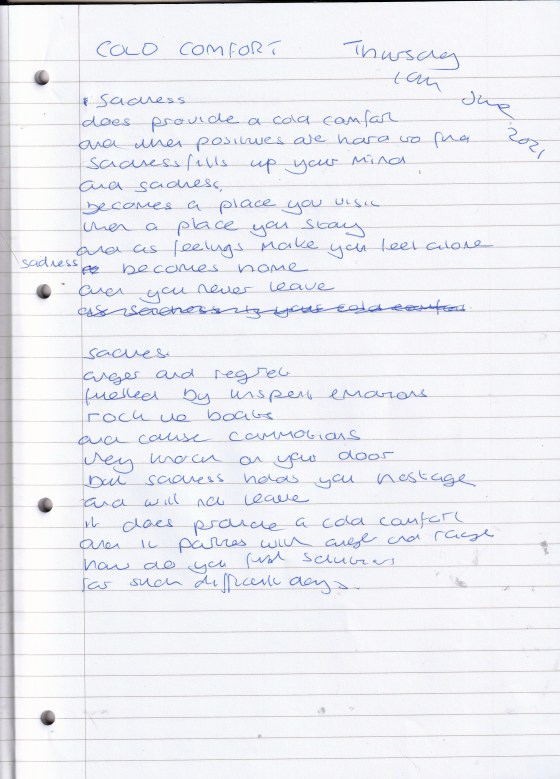 COLD COMFORT Thursday
1am
June 2021
Sadness
does provide a cold comfort
and when positives are hard to find
Sadness fills up your mind
and sadness,
becomes a place you visit
then a place you stay
and as feelings make you feel alone
sadness becomes home
and you never leave
as sadness is your cold comfort
sadness
anger and regret
fuelled by unspent emotions
rock the boats
and cause commotions
they knock on your door
but sadness holds you hostage
and will not leave
it does provide a cold comfort
and it parties with anger and rage
how do you find solutions
for such difficult days.